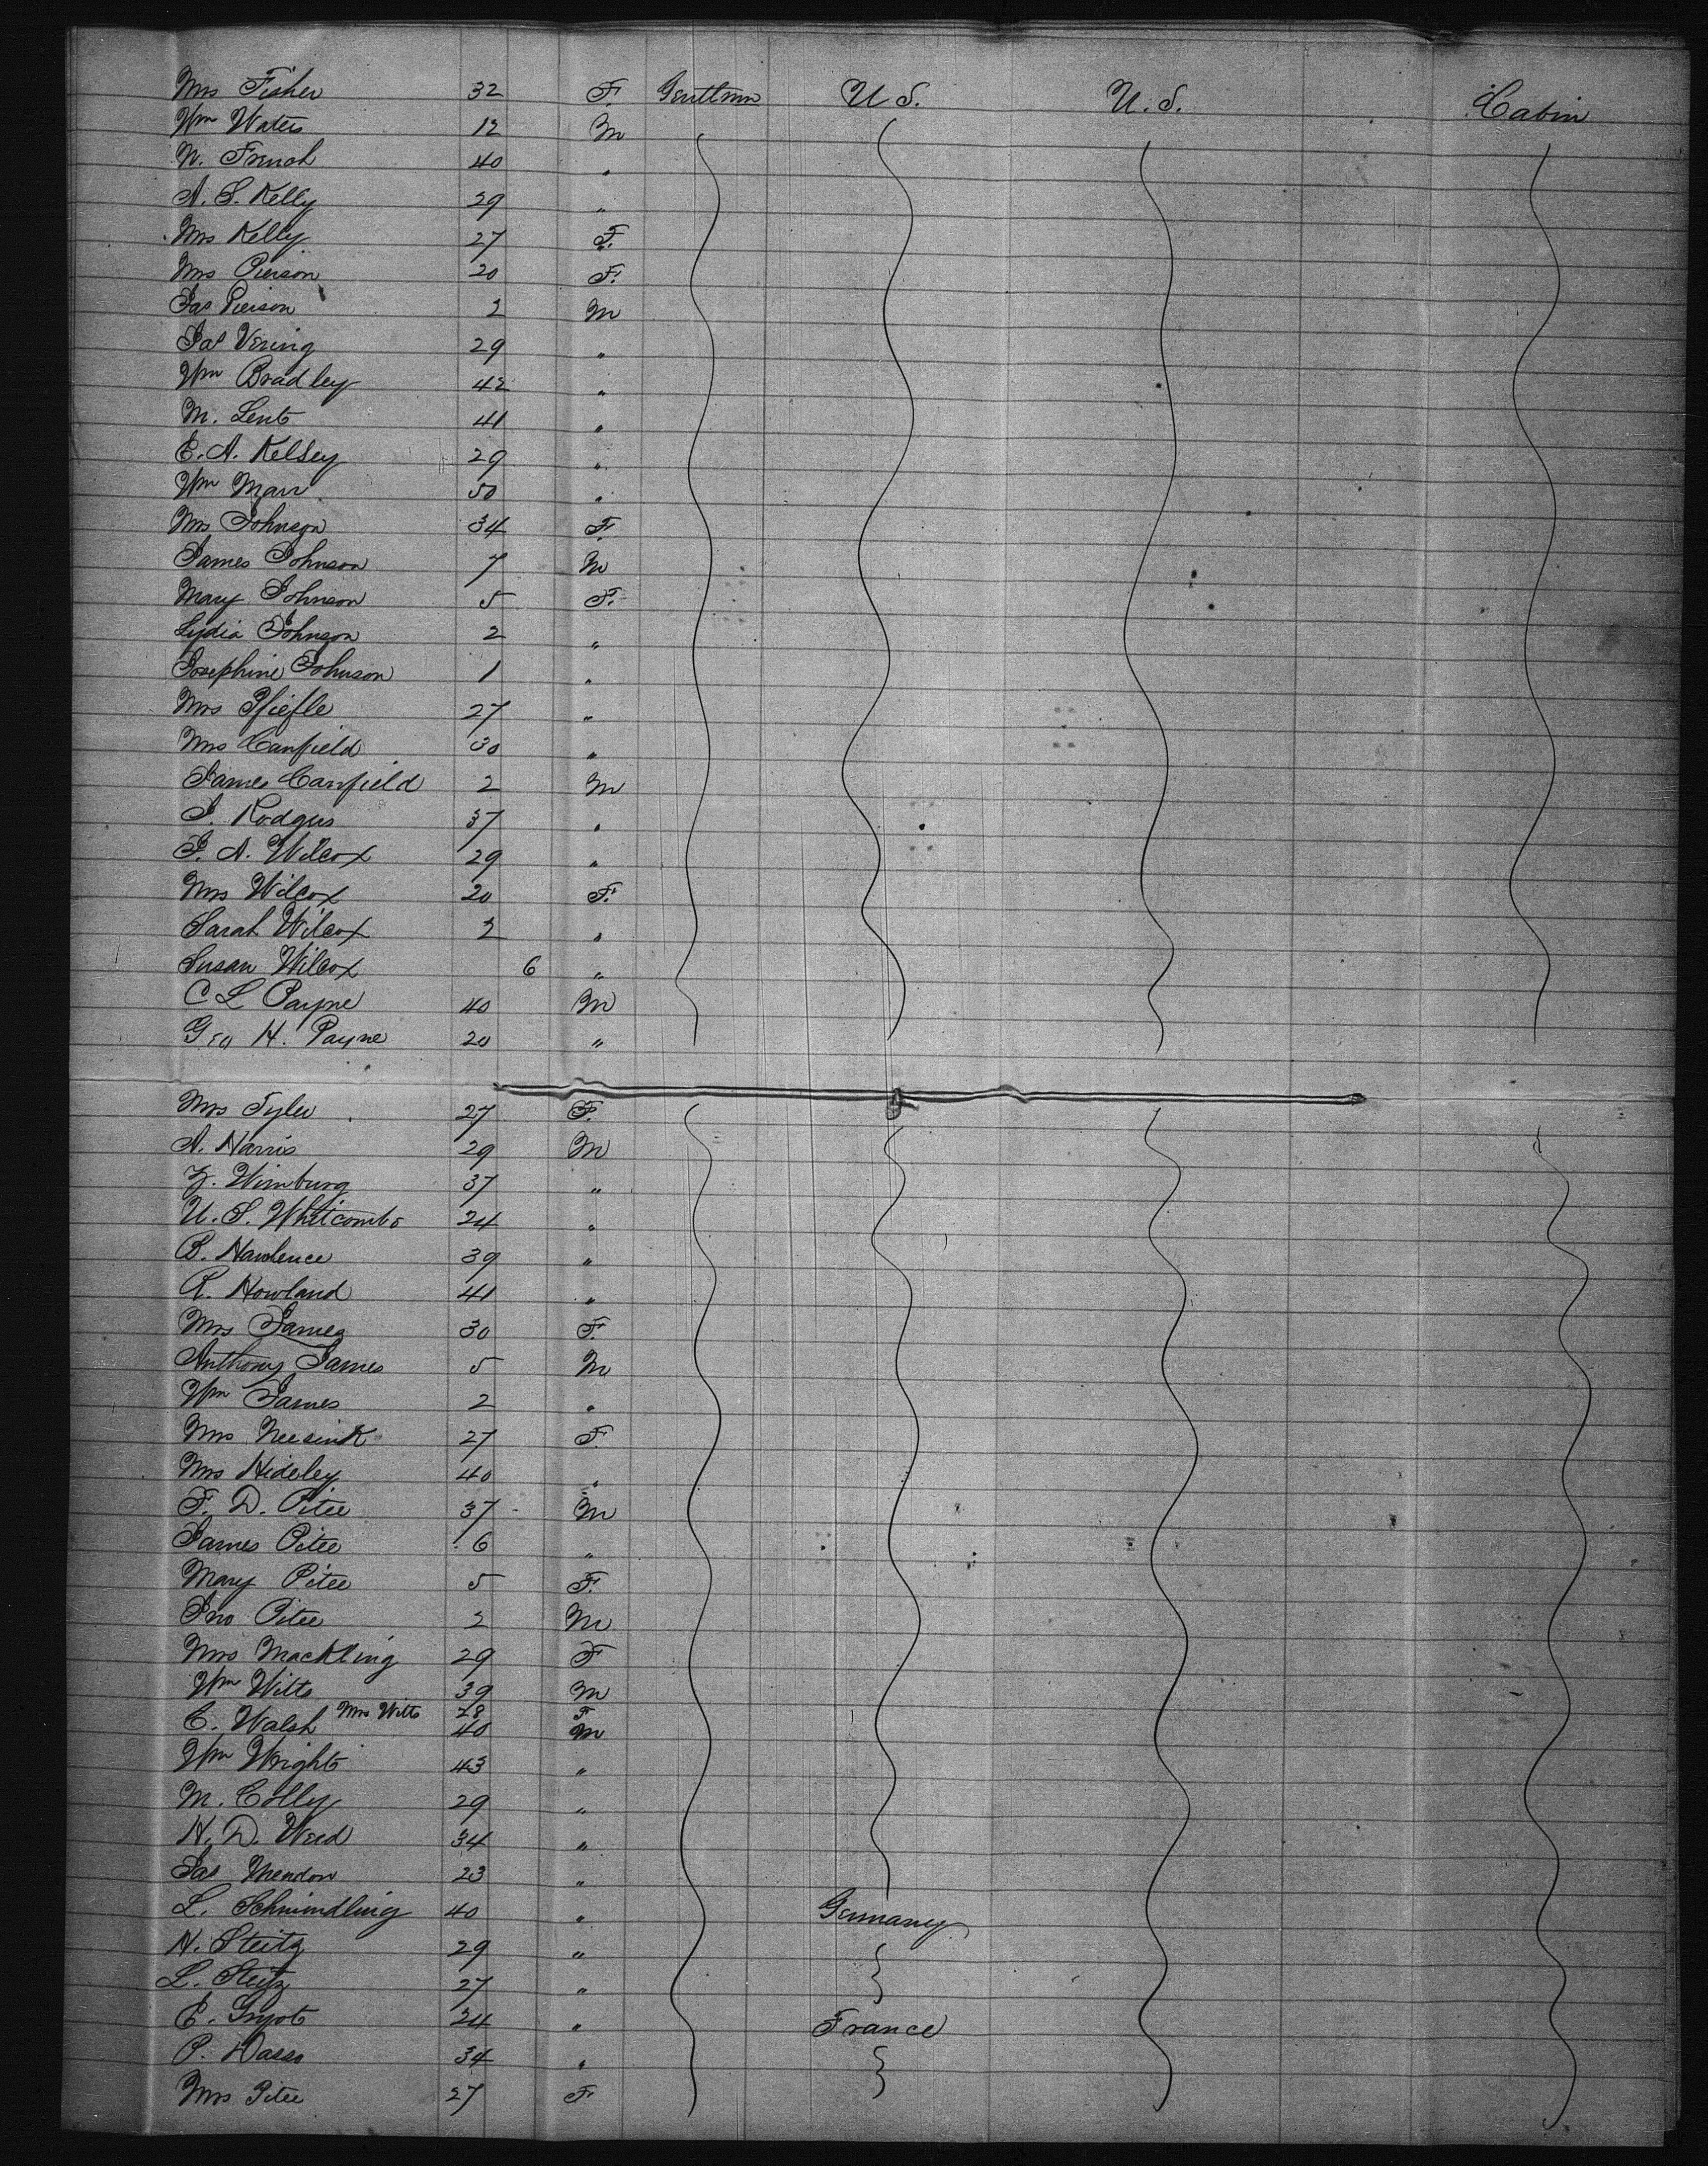 Mrs Fisher 32 F. Gentlmn U S. U. S. Cabin
Wm Waters 12 M
W. French 40 "
A. S. Kelly 29 "
Mrs Kelly 27 F.
Mrs Pierson 20 F.
Jas Pierson 2 M
Jas Vering 29 "
Wm Bradley 42 "
M. Lent 41 "
E. A. Kelsey 29 "
Wm Marr 50 "
Mrs Johnson 34 F.
James Johnson 7 M
Mary Johnson 5 F.
Lydia Johnson 2 "
Josephine Johnson 1 "
Mrs Pfiefle 27 "
Mrs Canfield 30 "
James Canfield 2 M
J. Rodgers 37 "
J. A. Wilcox 29 "
Mrs Wilcox 20 F.
Sarah Wilcox 2 "
Susan Wilcox 6 "
C L Payne 40 M
Geo H. Payne 20 "
Mrs Tyler 27 F.
A. Harris 29 M
Z. Wimburg 37 "
U. S. Whitcomb 24 "
B. 39 "
R. Howland 41 "
Mrs James 30 F.
Anthony James 5 M
Wm James 2 "
Mrs Neesink 27 F.
Mrs Hideley 40 "
F. D. Pitee 37 M
James Pitee 6 "
Mary Pitee 5 F.
Jno Pitee 2 M
Mrs Mackling 29 F
Wm Wilts 39 M
Mrs Wilts 28 F
C. Walsh 40 M
Wm Wright 43 "
M. Colly 29 "
H. D. Weed 34 "
Jas Meadow 23 "
L. Schmindling 40 " Germany
H. Steitz 29 "
L. Steitz 27 "
E. Guyot 24 " France
P. Dasso 34 "
Mrs Pitee 27 F